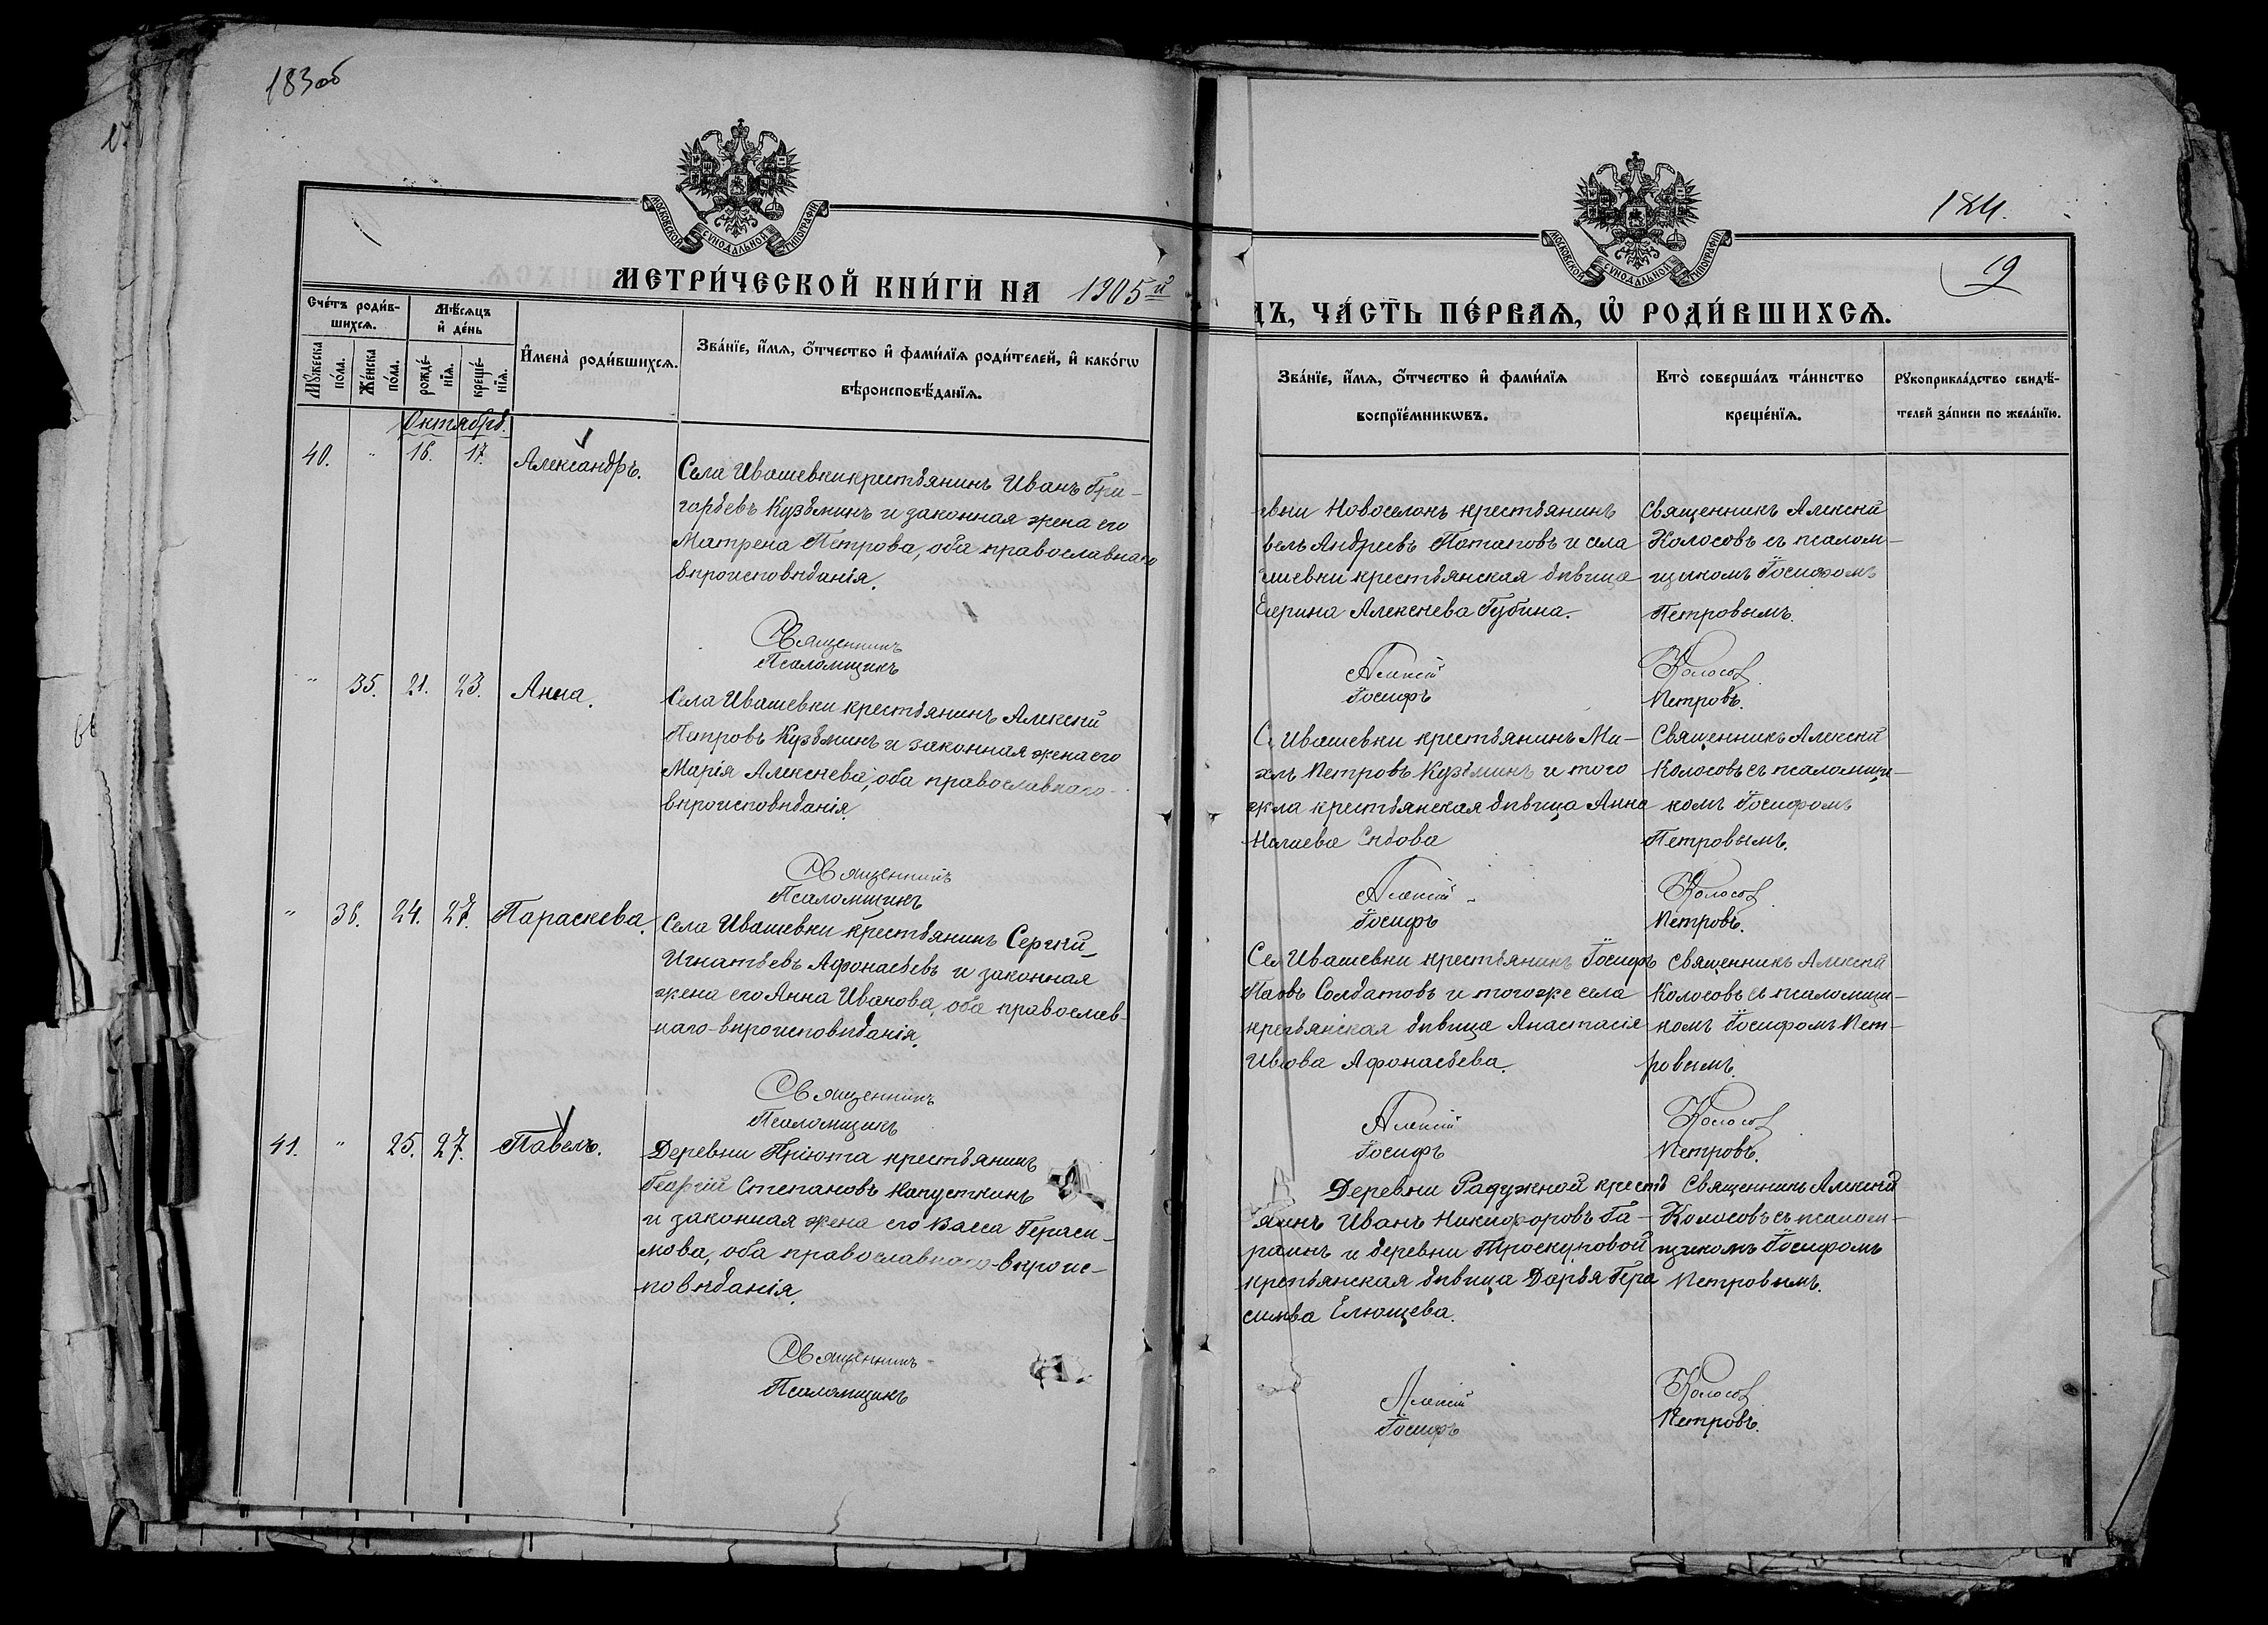 183об
МОСКОВСКОЙ СѴНОДАЛЬНОЙ ТИПОГРАФІИ
МЕТРИ́ЧЕСКОЙ КНИ́ГИ НА 1905й
Сче́тъ роди́в-
шихсѧ.
Мѣ́сѧцъ
и҆ де́нь
Мꙋ́жеска
по́ла.
Же́нска
по́ла.
рожде́-
нїѧ.
креще́-
нїѧ.
И҆мена̀ роди́вшихсѧ.
Зва́нїе, и҆́мѧ, ѻ҆́тчество и҆ фами́лїѧ роди́телей, и҆ како́гѡ
вѣроисповѣ́данїѧ.
Октябрь.
40. " 16. 17. Александръ.
Села Ивашевки крестьянинъ Иванъ Гри-
горьевъ Кузьминъ и законная жена его
Матрена Петрова, оба православнаго
вѣроисповѣданія.
Священникъ
Псаломщикъ
" 35. 21. 23. Анна.
Села Ивашевки крестьянинъ Алексѣй
Петровъ Кузьминъ и законная жена его
Марія Алексѣева, оба православнаго-
вѣроисповѣданія.
Священникъ
Псаломщикъ
" 36. 24. 27. Параскева.
Села Ивашевки крестьянинъ Сергѣй
Игнатьевъ Афонасьевъ и законная
жена его Анна Иванова, оба православ-
наго-вѣроисповѣданія.
Священникъ
Псаломщикъ
41. " 25. 27. Павелъ.
Деревни Пріюта крестьянинъ
Георгій Степановъ Капусткинъ
и законная жена его Васса Гераси-
мова, оба православнаго-вѣроис-
повѣданія.
Священникъ
Псаломщикъ
184.
9
МОСКОВСКОЙ СѴНОДАЛЬНОЙ ТИПОГРАФІИ
ДЪ, ЧА́СТЬ ПЕ́РВАѦ, Ѡ҆ РОДИ́ВШИХСѦ.
Зва́нїе, и҆́мѧ, ѻ҆́тчество и҆ фами́лїѧ
воспрїе́мникѡвъ.
Кто̀ соверша́лъ та́инство
креще́нїѧ.
Рꙋкоприкла́дство свидѣ́-
телей за́писи по жела́нїю.
евни Новоселокъ крестьянинъ
велъ Андреевъ Потаповъ и села
ашевки крестьянская дѣвица
Екерина Алексѣева Губина.
Священникъ Алексѣй
Колосовъ съ псалом-
щикомъ Іосифомъ
Петровымъ.
Алексій Колосов
Іосифъ Петровъ.
С. Ивашевки крестьянинъ Ми-
хлъ Петровъ Кузьминъ и того
жела крестьянская дѣвица Анна
Нолаева Сѣдова
Священникъ Алексѣй
Колосовъ съ псаломщи-
комъ Іосифомъ
Петровымъ.
Алексій Колосов
Іосифъ Петровъ.
Сел Ивашевки крестьянинъ Іосифъ
Паовъ Солдатовъ и того же села
кресьянская дѣвица Анастасія
Ивнова Афонасьева.
Священникъ Алексѣй
Колосовъ съ псаломщи-
комъ Іосифомъ Пет-
ровымъ.
Алексій Колосов
Іосифъ Петровъ.
Деревни Радужной кресть
янинъ Иванъ Никифоровъ Га-
ранинъ и деревни Проскуновой
крепьянская дѣвица Дарья Гера
симва Елющева.
Священникъ Алексѣй
Колосовъ съ псалом-
щикомъ Іосифомъ
Петровымъ.
Алексій Колосов
Іосифъ Петровъ.